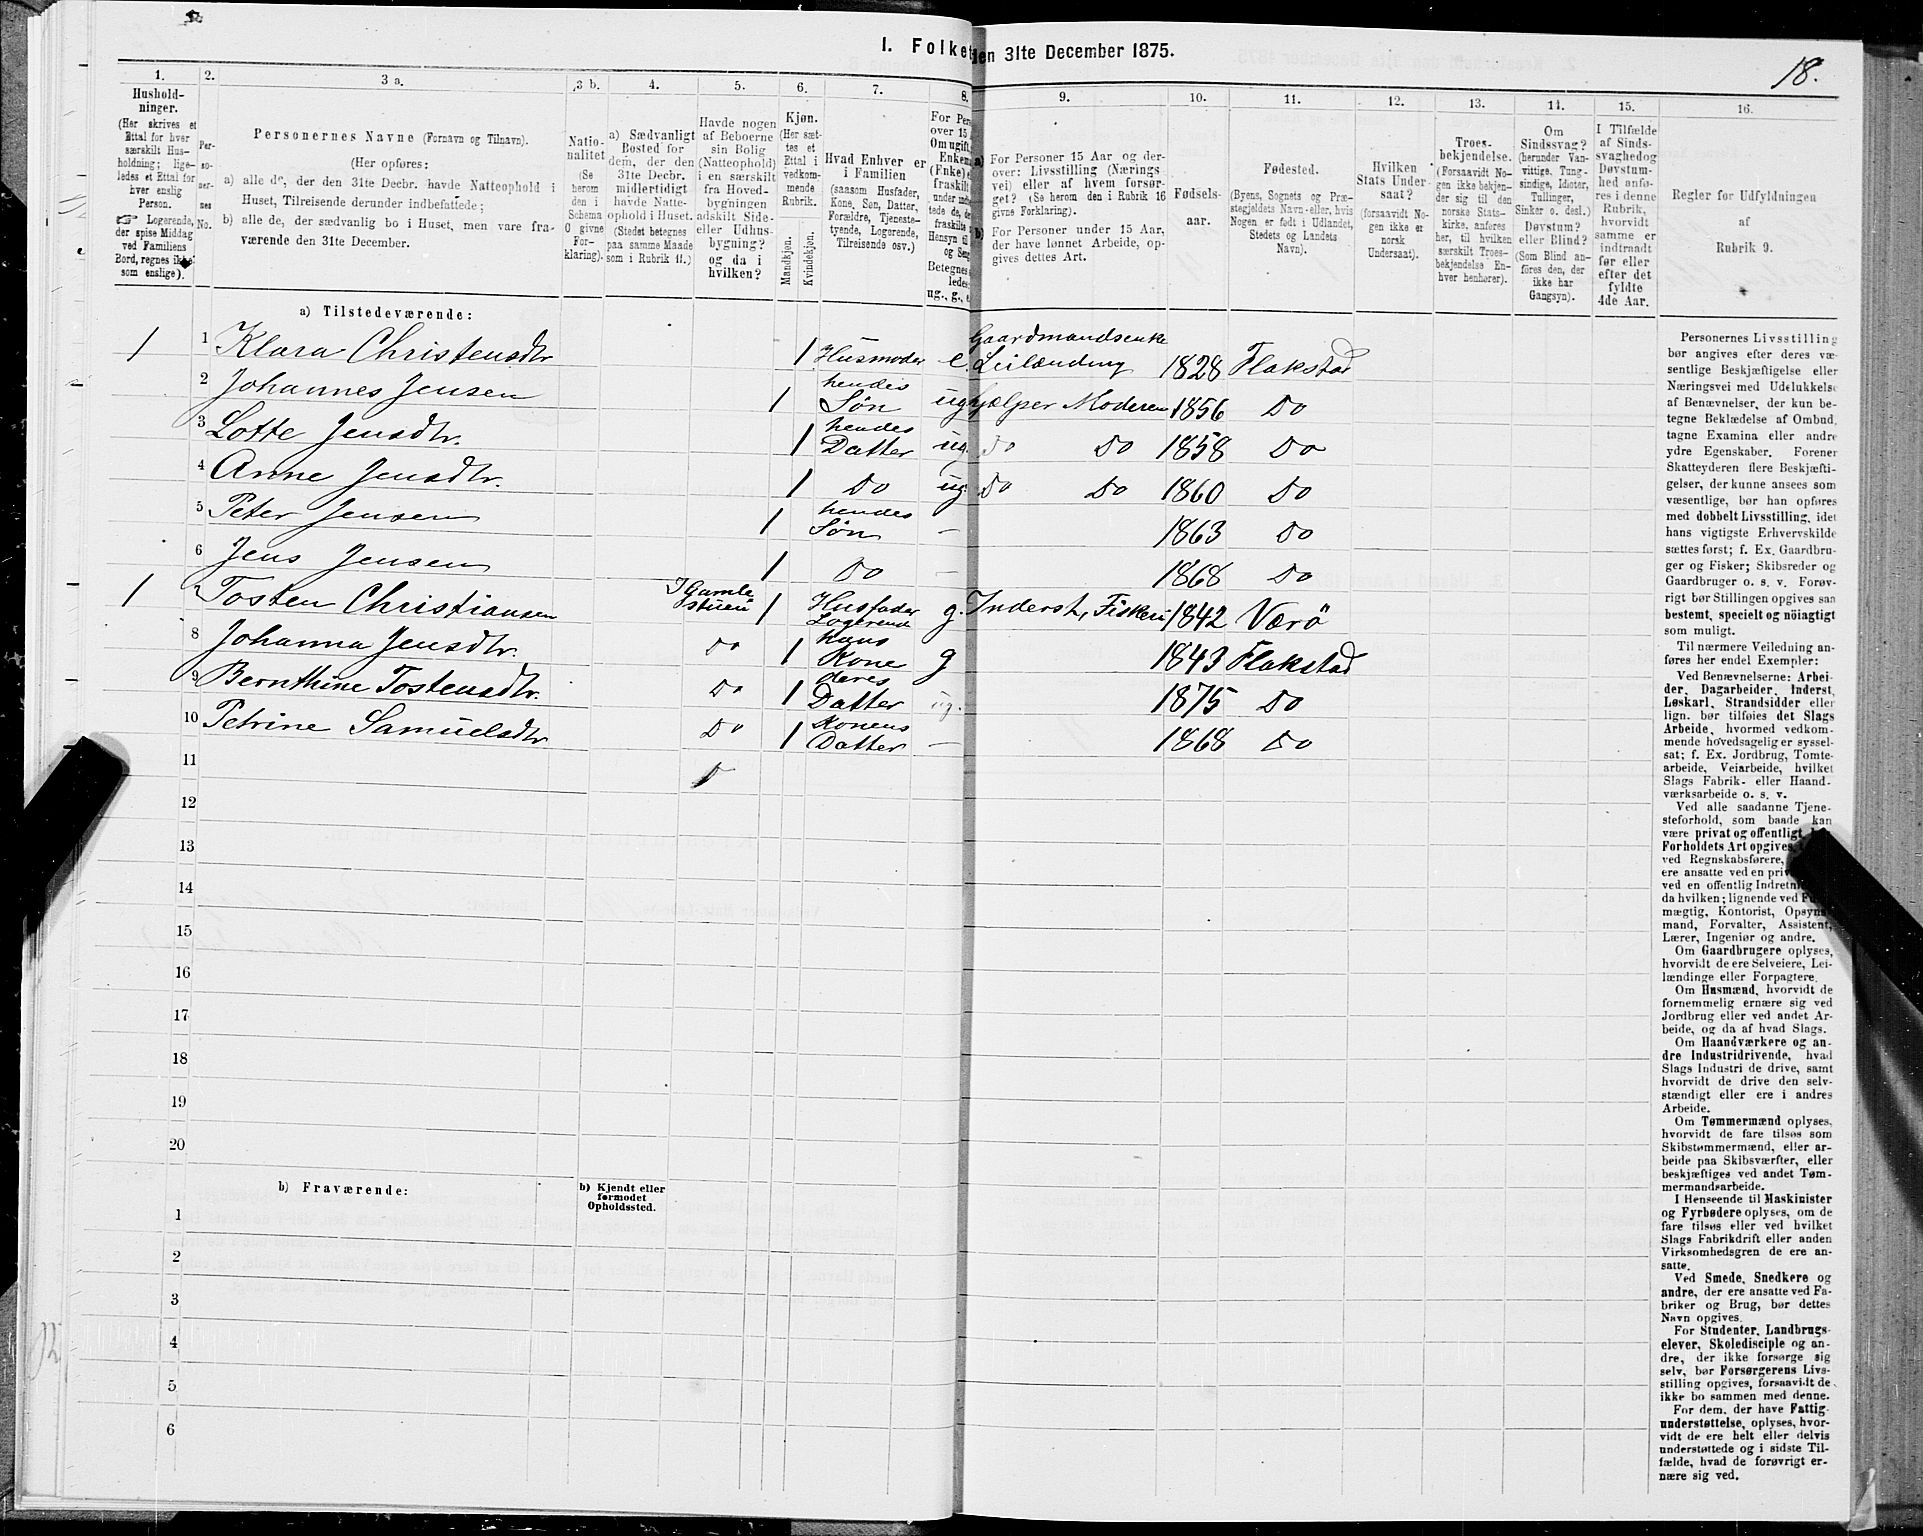 I. Folket
den 31te December 1875.
18.
1.
Hushold-
ninger.
(Her skrives et
Ettal for hver
særskilt Hus-
holdning; lige-
ledes et Ettal for
hver enslig
Person.
Logerende,
der spise Middag
ved Familiens
Bord, regnes ikke
som enslige).
2.
Per-
so-
ner-
nes
No.
3 a.
Personernes Navne (Fornavn og Tilnavn).
(Her opføres:
a) alle de, der den 31te Decbr. havde Natteophold i
Huset, Tilreisende derunder indbefattede;
b) alle de, der sædvanlig bo i Huset, men vare fra-
værende den 31te December.
3 b.
Natio-
nalitet
(Se
herom
den i
Schema
O givne
For-
klaring).
4.
a) Sædvanligt
Bosted for
dem, der den
31te Decbr.
midlertidigt
havde Natte-
ophold i Huset.
(Stedet betegnes
paa samme Maade
som i Rubrik 11.)
5.
Havde nogen
af Beboerne
sin Bolig
(Natteophold)
i en særskilt
fra Hoved-
bygningen
adskilt Side-
eller Udhus-
bygning?
og da i
hvilken?
6.
Kjøn.
(Her sæt-
tes et
Ettal i
vedkom-
mende
Rubrik.
Mandkjøn.
Kvindekjøn.
7.
Hvad Enhver er
i Familien
(saasom Husfader,
Kone, Søn, Datter,
Forældre, Tjeneste-
tyende, Logerende,
Tilreisende osv.)
8.
For Per
over 15
Om ugift,
Enkem
(Enke) e
fraskilt
under indbe
tede de, de
fraskilte
Hensyn til
og Seng
Betegnes
ledes
ug., g., e
9.
a)
For Personer 15 Aar og der-
over: Livsstilling (Nærings
vei) eller af hvem forsør-
get? (Se herom den i Rubrik 16
givne Forklaring).
b)
For Personer under 15 Aar,
der have lønnet Arbeide, op-
gives dettes Art.
10.
Fødsels-
aar.
11.
Fødested.
(Byens, Sognets og Præ-
stegjeldets Navn - eller, hvis
Nogen er født i Udlandet,
Stedets og Landets
Navn).
12.
Hvilken
Stats Under
saat?
(forsaavidt No-
gen ikke er
norsk
Undersaat).
13.
Troes-
bekjendelse.
(Forsaavidt No-
gen ikke bekjen-
der sig til den
norske Stats-
kirke, anføres
her, til hvilken
særskilt Troes-
bekjendelse En-
hver henhører).
14.
Om
Sindssvag?
(herunder Van-
vittige, Tung-
sindige, Idioter,
Tullinger,
Sinker o. desl.)
Døvstum?
eller Blind?
(Som Blind an-
føres den, der
ikke har
Gangsyn).
15.
I Tilfælde
af Sinds-
svaghed og
Døvstum-
hed anfø-
res i denne
Rubrik,
hvorvidt
samme er
indtraadt
før eller
efter det
fyldte
4de Aar.
16.
Regler for Udfyldningen
af
Rubrik 9.
a) Tilstedeværende:
Gaardmandsenke
1 1 Klara Christensdtr 1 Husmoder e. Leilænding 1828 Flakstad
hendes
2 Johannes Jensen 1 Søn ug hjælper Moderen 1856 Do
hendes
3 Lotte Jensdtr. 1 Datter ug. Do Do 1858 Do
4 Anne Jensdtr. 1 Do ug. Do Do 1860 Do
hendes
5 Peter Jensen 1 Søn – 1863 Do
6 Jens Jensen 1 Do – 1868 Do
I Gamle
1 Tosten Christiansen stuen 1 Husfader g. Inderst, Fiskeri 1842 Værö
Logerende
hans
8 Johanna Jensdtr. Do 1 Kone g 1843 Flakstad
deres
9 Bernthine Tostensdtr. Do 1 Datter ug. 1875 Do
Konens
10 Petrine Samuelsdtr Do 1 Datter – 1868 Do
11
12
13
14
15
16
17
18
19
20
b) Fraværende:
b) Kjendt eller
formodet
Opholdssted.
1
2
3
4
5
6
Personernes Livsstilling
bør angives efter deres væ-
sentlige Beskjæftigelse eller
Næringsvei med Udelukkelse
af Benævnelser, der kun be-
tegne Beklædelse af Ombud,
tagne Examina eller andre
ydre Egenskaber. Forener
Skatteyderen flere Beskjæfti-
gelser, der kunne ansees som
væsentlige, bør han opføres
med dobbelt Livsstilling, idet
hans vigtigste Erhvervskilde
sættes først; f. Ex. Gaardbru-
ger og Fisker; Skibsreder og
Gaardbruger o. s. v. Forøv-
rigt bør Stillingen opgives saa
bestemt, specielt og nöiagtigt
som muligt.
Til nærmere Veiledning an-
føres her endel Exempler:
Ved Benævnelserne: Arbei-
der, Dagarbeider, Inderst,
Løskarl, Strandsidder eller
lign. bør tilføies det Slags
Arbeide, hvormed vedkom-
mende hovedsagelig er syssel-
sat; f. Ex. Jordbrug, Tomte-
arbeide, Veiarbeide, hvilket
Slags Fabrik- eller Haand-
værksarbeide o. s. v.
Ved alle saadanne Tjene-
steforhold, som baade kan
være privat og offentligt,
Forholdets Art opgives,
ved Regnskabsførere,
ere ansatte ved en priv
ved en offentlig Indretni
da hvilken; lignende ved Fu
mægtig, Kontorist, Opsyns
mand, Forvalter, Assistent,
Lærer, Ingeniør og andre.
Om Gaardbrugere oplyses,
hvorvidt de ere Selveiere, Lei-
lændinge eller Forpagtere.
Om Husmænd, hvorvidt de
fornemmelig ernære sig ved
Jordbrug eller ved andet Ar-
beide, og da af hvad Slags.
Om Haandværkere og an-
dre Industridrivende, hvad
Slags Industri de drive, samt
hvorvidt de drive den selv-
stændigt eller ere i andres
Arbeide.
Om Tømmermænd oplyses,
hvorvidt de fare tilsøs som
Skibstømmermænd, eller ar-
beide paa Skibsværfter, eller
beskjæftiges ved andet Tøm-
mermandsarbeide.
I Henseende til Maskinister
og Fyrbødere oplyses, om de
fare tilsøs eller ved hvilket
Slags Fabrikdrift eller anden
Virksomhedsgren de ere an-
satte.
Ved Smede, Snedkere og
andre, der ere ansatte ved Fa-
briker og Brug, bør dettes
Navn opgives.
For Studenter, Landbrugs-
elever, Skoledisciple og an-
dre, der ikke forsørge sig
selv, bør Forsørgerens Livs-
stilling opgives, forsaavidt de
ikke bo sammen med denne.
For dem, der have Fattig-
understøttelse, oplyses, hvor-
vidt de ere helt eller delvis
understøttede og i sidste Til-
fælde, hvad de forøvrigt er-
nære sig ved.